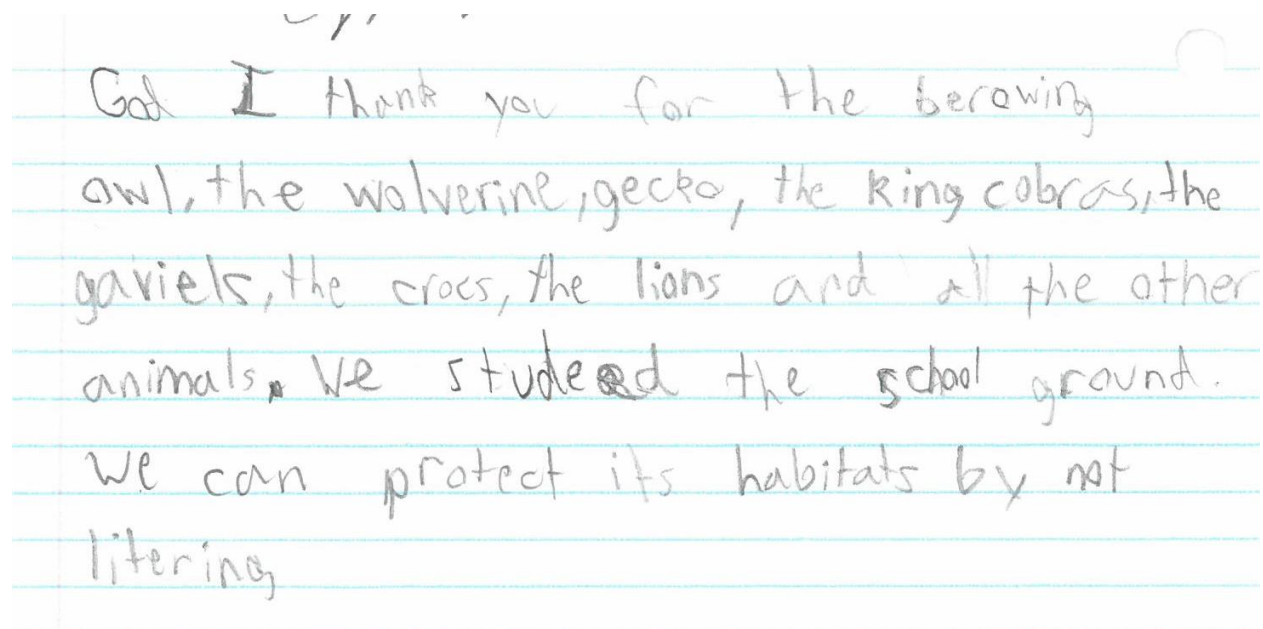 God I thank you for the berowing
owl, the wolverine, gecko, the king cobras, the
gaviels, the crocs, the lions and all the other
animals. We studeed the school ground.
We can protect its habitats by not
litering